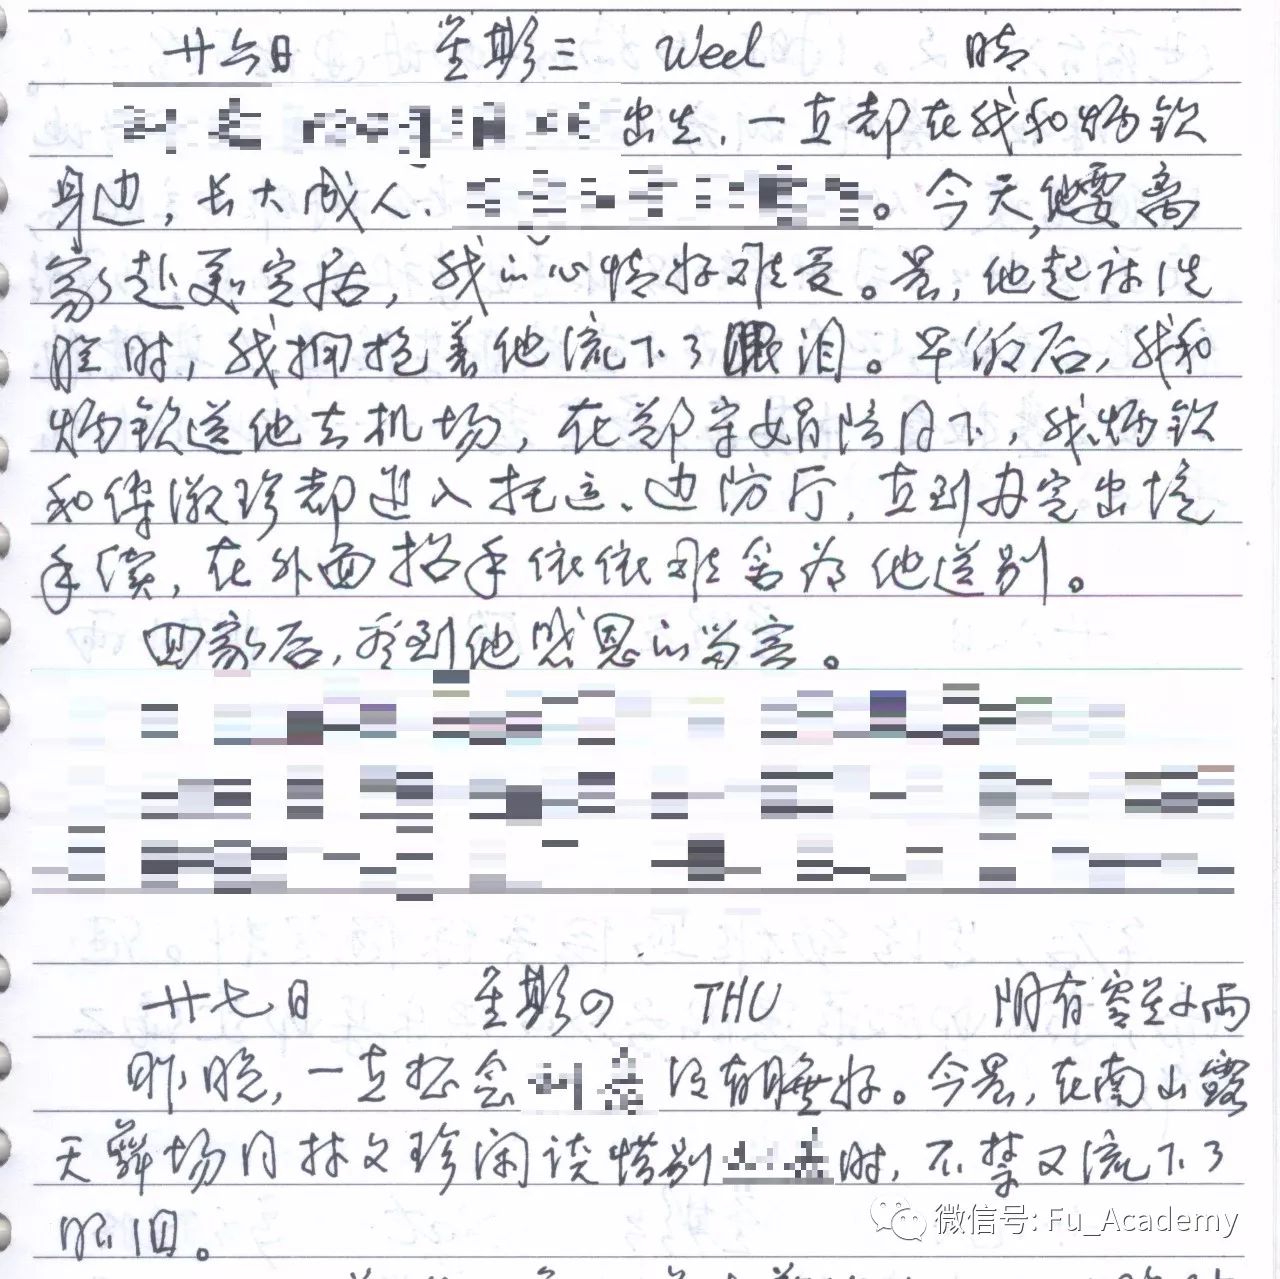 廿六日 星期三 Wed 晴
出生，一直都在我和炳钦
身边，长大成人、。今天，他要离
家赴美定居，我的心情好难受。晨，他起床洗
脸时，我拥抱着他流下了眼泪。早饭后，我和
炳钦送他去机场，在郑守娟陪同下，我、炳钦
和傅淑珍都进入托运、边防厅，直到办完出境
手续，在外面招手依依难舍为他送别。
回家后，看到他感恩的留言。
廿七日 星期四 THU 阴有零星小雨
昨晚，一直想念没有睡好。今晨，在南山露
天舞场同林文珍闲谈惜别时，不禁又流下了
眼泪。
微信号: Fu_Academy